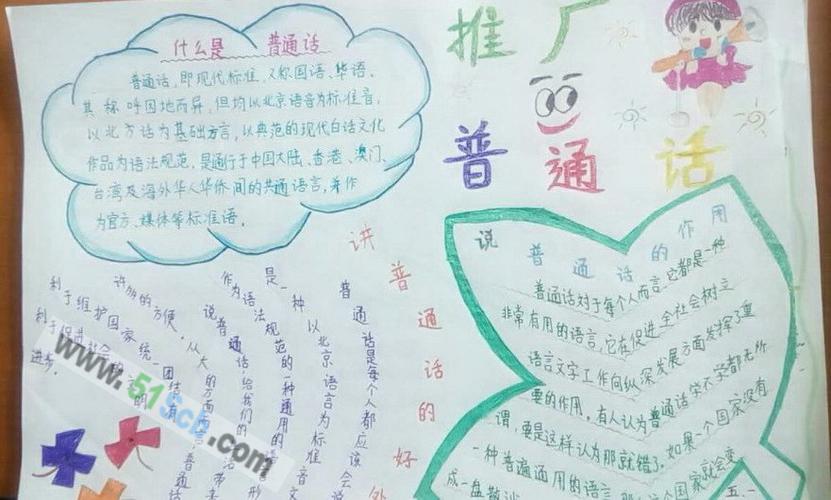 推广
普通话
什么是 普通话
普通话,即现代标准,又称国语、华语,
其称呼因地而异,但均以北京语音为标准音,
以北方话为基础方言,以典范的现代白话文化
作品为语法规范,是通行于中国大陆、香港、澳门、
台湾及海外华人华侨间的共通语言,并作
为官方、媒体等标准语。
讲普通话的好处
普通话是每个人都应该会说
一种以北京语言为标准音
是
作为语法规范的一种通用的语言形
说普通话,给我们的
许许多的方便,从大的方面
利于维护国家统一团结有
利于促进社会
进步。
说普通话的作用
普通话对于每个人而言,它都是一种
非常有用的语言,它在促进全社会树立
语言文字工作向纵深发展方面发挥了重
要的作用。有人认为普通话学不学都无所
谓,要是这样认为那就错了。如果一个国家没有
一种普遍通用的语言,
个国家就会变
成一盘散沙
五.一
www.51Sch.com